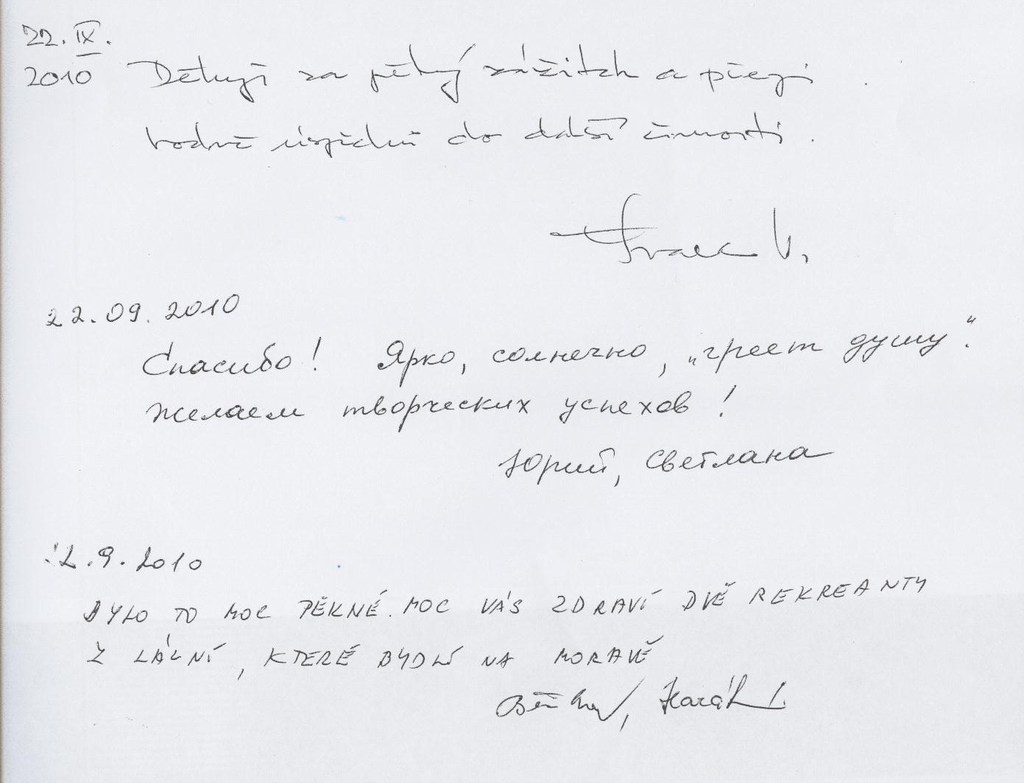 22. IX.
2010 Děkuji za pěkný zážitek a přeji
hodně úspěchů do další činnosti.
22.09.2010
Спасибо! Ярко, солнечно, „греет душу“.
Желаем творческих успехов!
Юрий, Светлана
2.9.2010
BYLO TO MOC PĚKNÉ. MOC VÁS ZDRAVÍ DVĚ REKREANTY
Z LÁZNÍ, KTERÉ BYDLÍ NA MORAVĚ